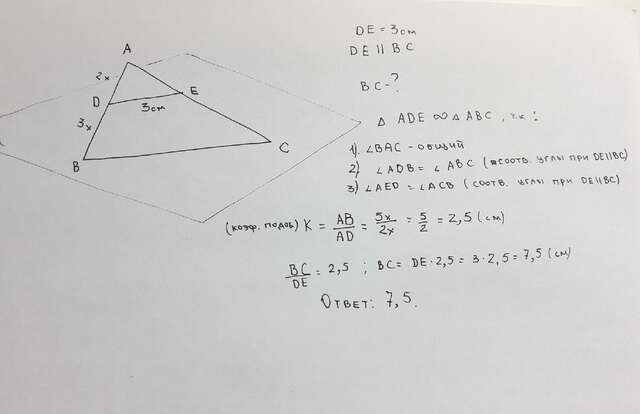 DE = 3см
DE || BC
BC - ?
A
2x
D
E
3см
3x
B
C
△ ADE ∞ △ ABC, т.к:
1). ∠BAC - общий
2) ∠ADB = ∠ABC (соотв. углы при DE||BC)
3) ∠AED = ∠ACB (соотв. углы при DE||BC)
(коэф. подоб) K = AB/AD = 5x/2x = 5/2 = 2,5 (см)
BC/DE = 2,5 ; BC = DE · 2,5 = 3 · 2,5 = 7,5 (см)
Ответ: 7,5.